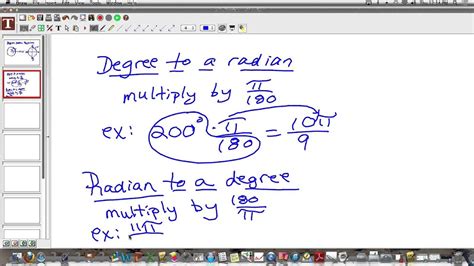 Degree to a radian
multiply by π/180
ex: 200° · π/180 = 10π/9
Radian to a degree
multiply by 180/π
ex: 11π